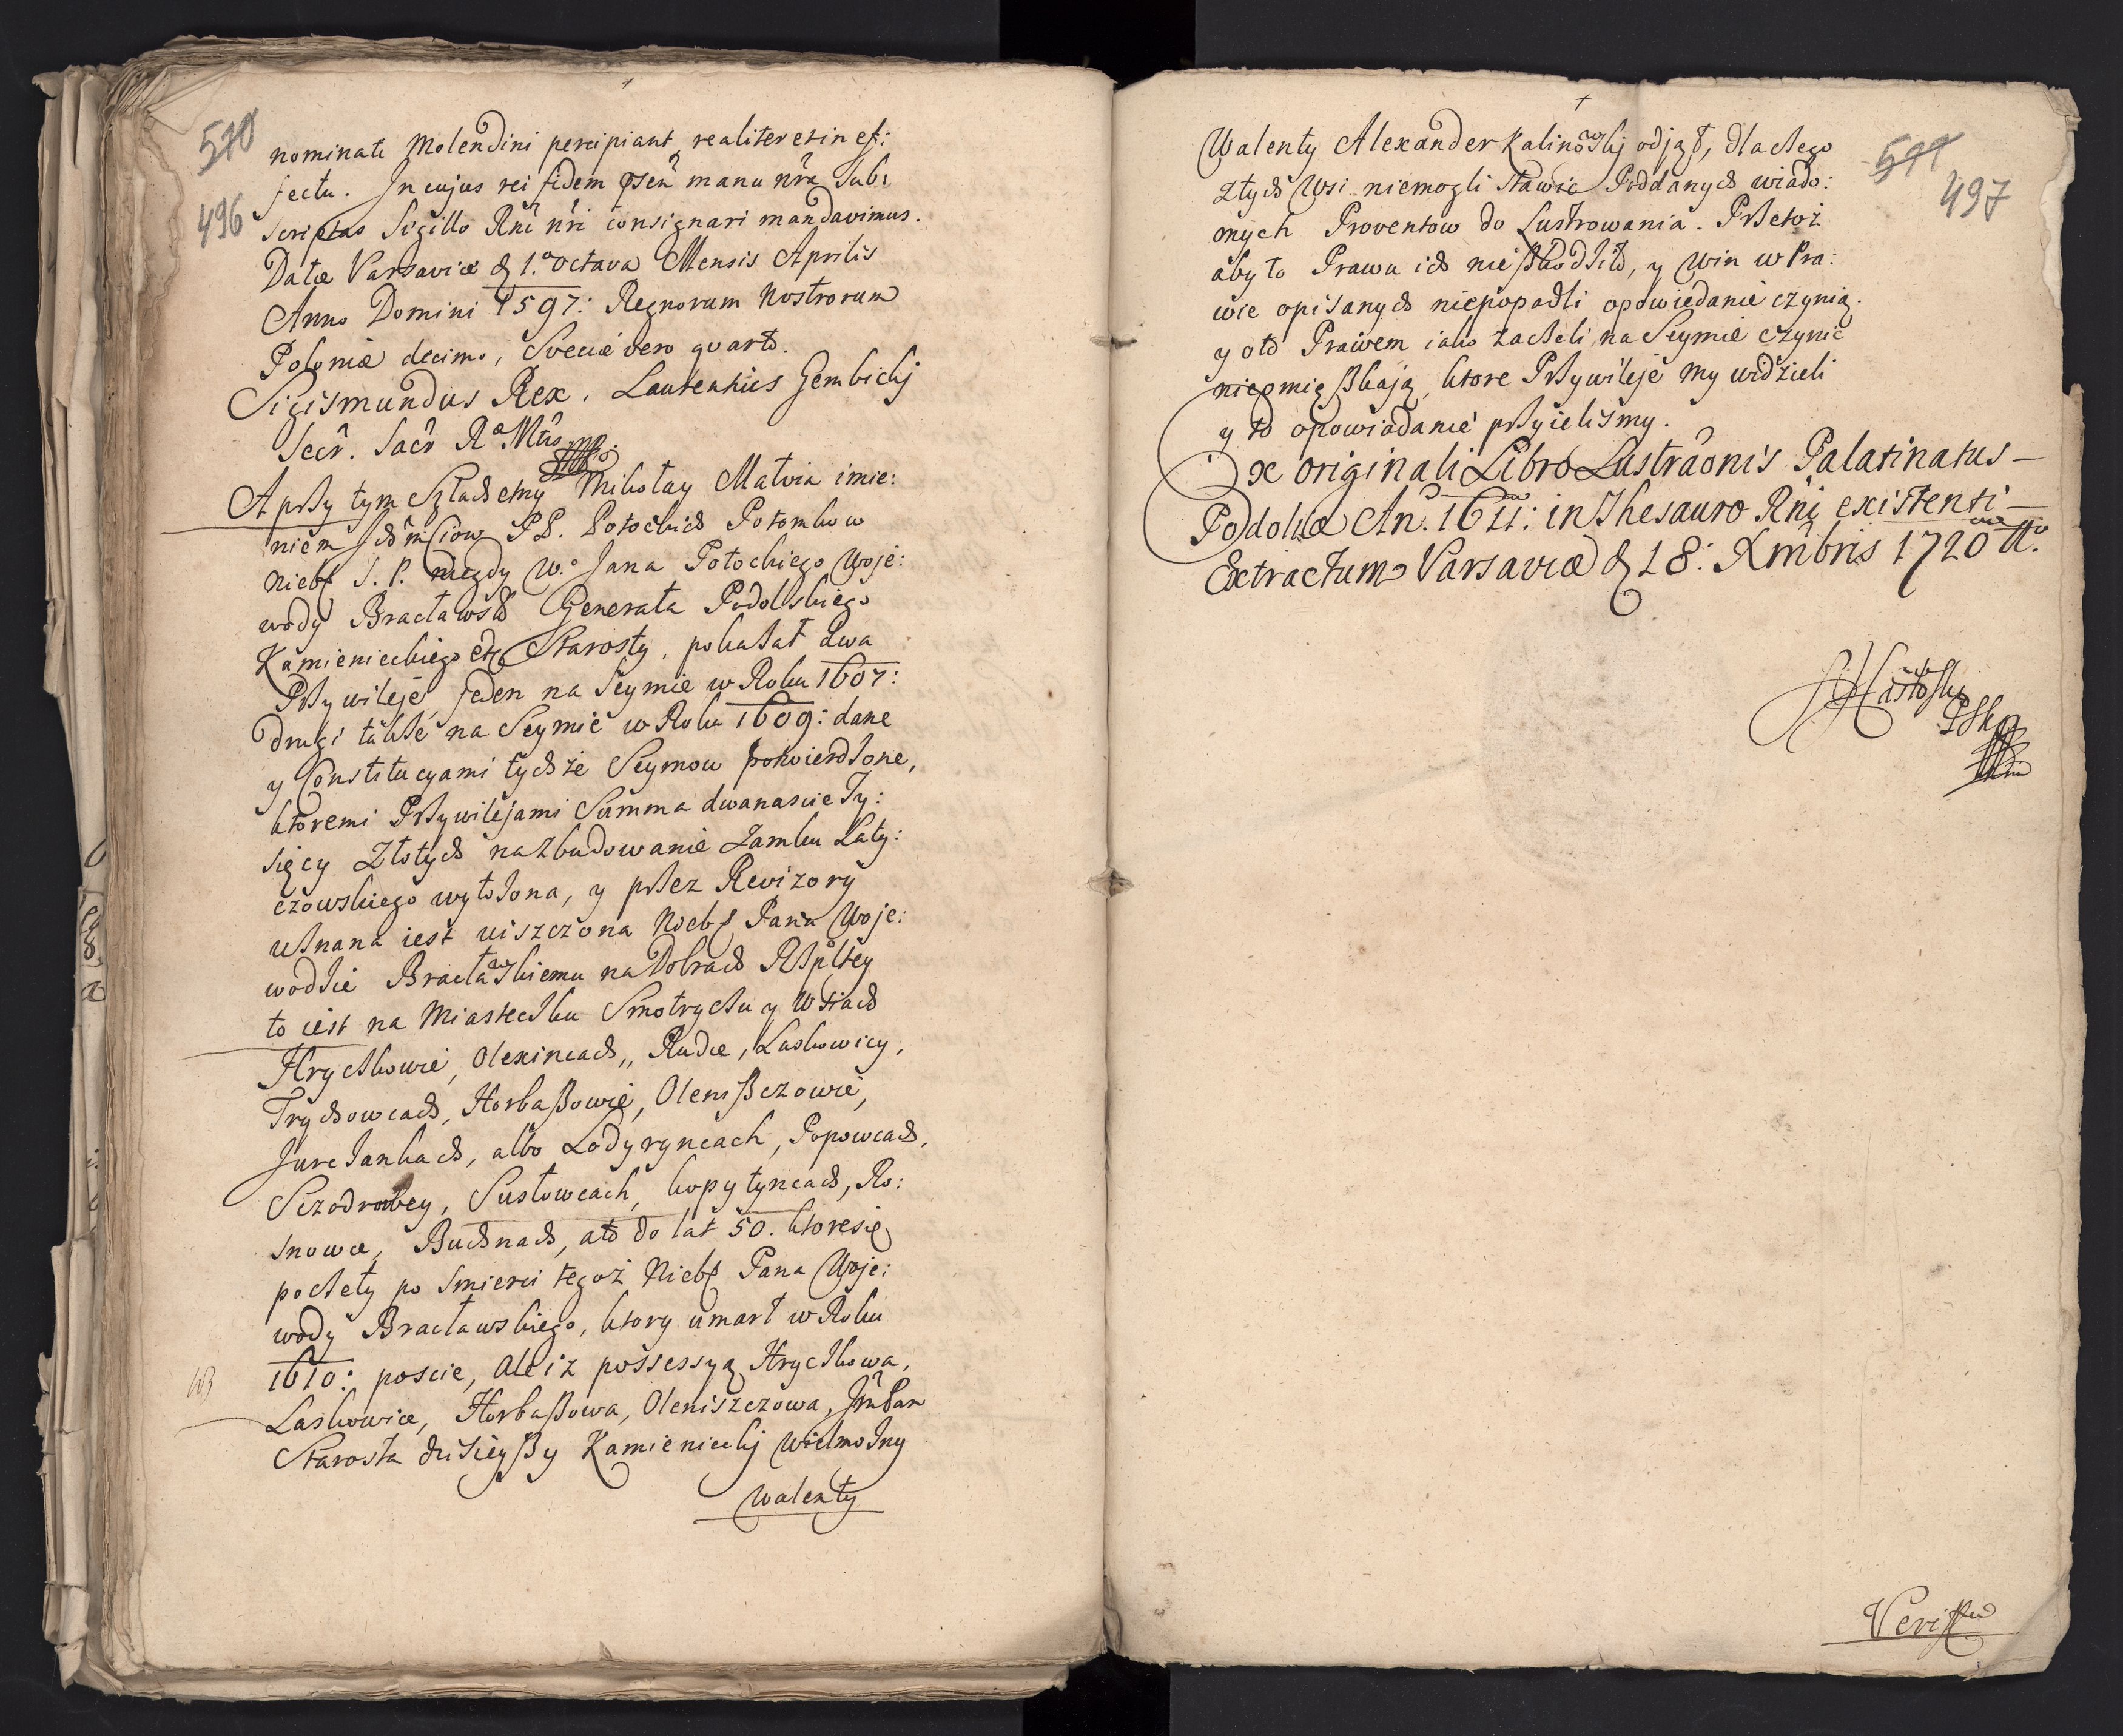 510
496
nominati Molendini percipiant realiter et in ef:
fectu. In cujus rei fidem pñsẽ manu nrã Sub:
scriptas Sigillo Rñi nrĩ consignari mandavimus.
Datæ Varsaviæ d. 1.a octava Mensis Aprilis
Anno Domini 1597: Regnorum Nostrorum
Poloniæ decimo, Sveciæ vero qvarto.
Sigismundus Rex. Laurentius Gembickj
Secr. Sacr Rae Mtis mp.
A przy tym Szlachetny Mikołay Matvia imie:
niem Ichmciow PP. Potockich Potomkow
Niebζ S. P. niegdy W.o Jana Potockiego Woje:
wody Bracławsk Generała Podolskiego
Kamienieckiego etc Starosty, pokazał dwa
Przywileje, jeden na Seymie w Roku 1607:
drugi także na Seymie w Roku 1609: dane
y Constitucyami tychże Seymow potwierdzone,
ktoremi Przywilejami Summa dwanascie Ty:
sięcy Złotych na Zbudowanie Zamku Laty:
czowskiego wyłożona, y przez Rewizory
uznana iest uiszczona Niebζ Pana Woje:
wodzie Bracławskiemu na Dobrach Rzpltey
to iest na Miasteczku Smotryczu y Wsiach
Hryczkowie, Olexincach,, Rudce, Laskowicy,
Trychowcach, Horbaszowie, Oleniszczowie,
Jurczankach, albo Lodyryncach, Popowcach,
Sczodrobey, Susłowcach, kopytyncach, Ro:
snowce, Buchnach, a to do lat 50. ktore się
poczeły po Smierci tegoż Niebζ Pana Woje:
wody Bracławskiego, ktory umarł w Roku
1610: poscie, Ale iz possessyą Hryczkowa,
Laskowice, Horbaszowa, Oleniszczowa, Jm̃ Pan
Starosta dzisieyszy Kamienieckj Wielmożny
Walenty
Walenty Alexander Kalinowskj odjął, dlaczego
z tych Wsi niemogli stawić Poddanych wiado:
mych Proventow do Lustrowania. Przetoż
aby to Prawu ich nieszkodziło, y Win w Pra:
wie opisanych niepopadli opowiedanie czynią.
y o to Prawem iako zaczeli na Seymie czynić
nieomięszkają, ktore Przywileje my widzieli
y to opowiadanie przyieliśmy.
Ex originali Libro Lustraõnis Palatinatus
Podoliæ An. 1611: in Thesauro Rñi existenti
Extractum Varsaviæ d. 18: Xmbris 1720
511
497